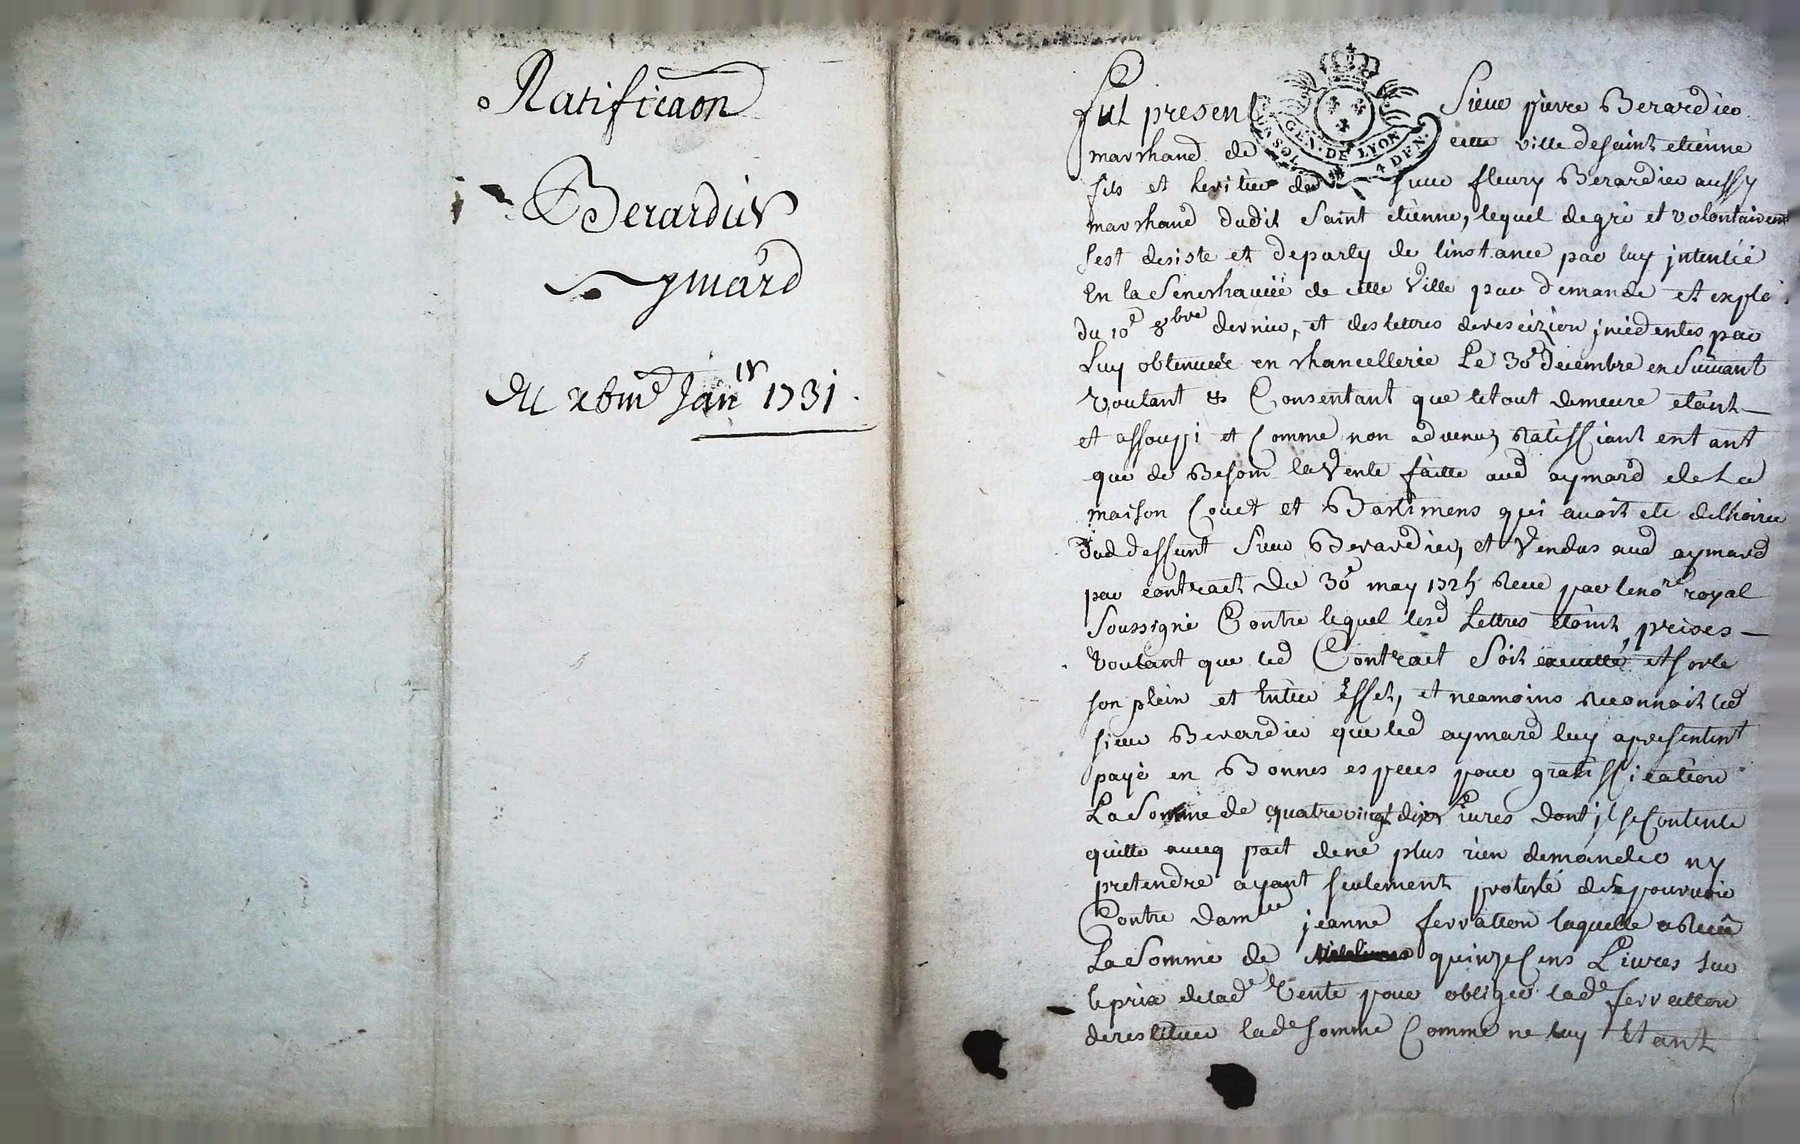 Ratificaon
Berardier
ymard
Du xbme Janier 1731.
GEN. DE LYON
SOL. 4 DEN.
fut present Sieur pierre Berardier
marchand de cette ville de saint etienne
fils et heritier de sieur fleury Berardier aussy
marchand dudit saint etienne, lequel de gré et volontairemt
sest desiste et departy de linstance par luy jntentée
En la Senechaucée de cette Ville par demande et explo
du 10e 8bre dernier, et des lettres de rescizion jncidentes par
Luy obtenuees en chancellerie Le 30e decembre en Suivant
Voulant & Consentant que le tout demeure etaint
et assoupi et Comme non advenu, Ratiffiant entant
que de Besoin la Vente faitte aud aymard de La
maison Court et Bastimens qui avoit ete de lhoirie
dud deffunt Sieur Berardier, et Vendus aud aymard
par contract du 30e may 1725 Receu par le nore royal
Soussigné Contre lequel lesd Lettres etoint prises
Voulant que led Contract Soit executté, et sorte
son plein et Entier Effet, et neamoins reconnoit led
sieur Berardier que led aymard luy a presentent
payé en Bonnes especes pour gratiffication
La Somme de quatre vingt dix Livres dont jl se Contente
quitte avecq pact de ne plus rien demander ny
pretendre ayant seulement protesté de se pourvoir
Contre damlle jeanne ferration laquelle a Receu
La Somme de quinze Cens Livres sur
le prix de lade Vente pour obliger lade ferration
de restituer lade somme Comme ne luy Etant